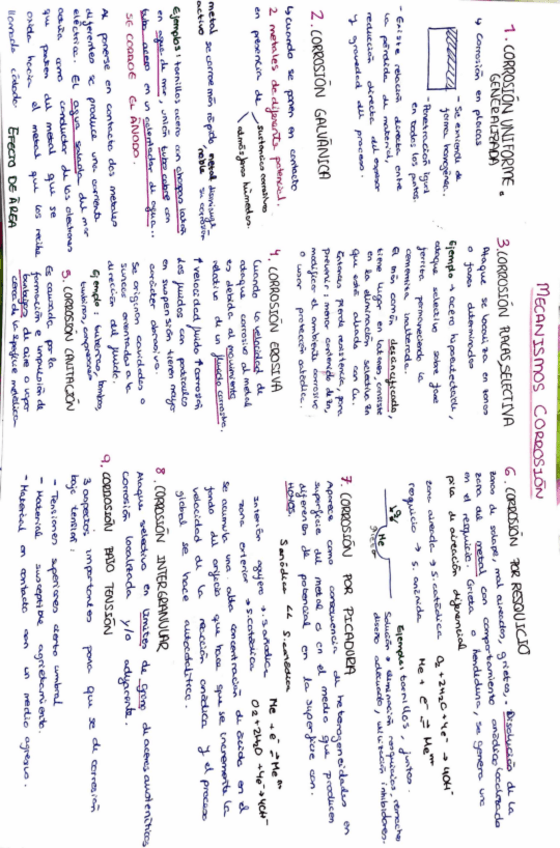 MECANISMOS CORROSIÓN
1. CORROSIÓN UNIFORME o
GENERALIZADA
↳ Corrosión en placas
- Se extiende de
forma homogénea.
- Penetración igual
en todos los puntos.
- Existe relación directa entre
la pérdida de material,
reducción directa del espesor
y gravedad del proceso.
2. CORROSIÓN GALVÁNICA
↳ Cuando se ponen en contacto
2 metales de diferente potencial.
en presencia de sustancias corrosivas
atmósferas húmedas.
metal se corroe más rápido metal
activo noble su corrosión
Ejemplos: tornillos acero con chapas latón
en agua de mar, unión tubo cobre con
tubo acero en un calentador de agua..
SE CORROE EL ÁNODO.
Al ponerse en contacto dos metales
diferentes se produce una corriente
eléctrica. El agua salada del mar
actúa como conductor de los electrones
que parten del metal que se
oxida hacia el metal que los recibe
llamado cátodo. EFECTO DE ÁREA
3. CORROSIÓN PLACAS, SELECTIVA
Ataque se localiza en zonas
o fases determinadas
Ejemplo → acero hipoeutectoide,
ataque selectivo sobre fase
ferrita permaneciendo la
cementita inalterada.
El más común descincificado,
tiene lugar en latones, consiste
en la eliminación selectiva Zn
que está aleado con Cu.
Entonces pierde resistencia, para
prevenir: menor contenido de Zn,
modificar el ambiente corrosivo
o usar protección catódica.
4. CORROSIÓN EROSIVA
Cuando la velocidad de
ataque corrosivo al metal
es debida al movimiento
relativo de un fluido corrosivo.
↑ velocidad fluido ↑ corrosión
Los fluidos con partículas
en suspensión tienen mayor
carácter abrasivo.
Se originan cavidades o
surcos orientados en la
dirección del fluido.
Ejemplo: tuberías, bombas,
turbinas, compresores
5. CORROSIÓN CAVITACIÓN
Es causada por la
formación e impulsión de
burbujas de aire o vapor
cerca de la superficie metálica
6. CORROSIÓN POR RESQUICIO
zonas de solape, mal aireadas, grietas. - Disolución de la
zona del metal con comportamiento anódico localizada
en el resquicio. Grieta o hendidura, se genera una
pila de aireación diferencial
zona aireada → S. catódica O₂ + 2H₂O + 4e⁻ → 4OH⁻
resquicio → S. anódica Me + e⁻ ⇌ Meⁿ⁺
O₂
Me
Ejemplos: tornillos, juntas.
Solución → eliminación resquicios, remache
diseño adecuado, utilización inhibidores.
7. CORROSIÓN POR PICADURA
Aparece como consecuencia de heterogeneidades en
superficie del metal es en el medio que producen
diferencias de potencial en la superficie con.
S anódica << S. catódica
interior agujero → S. anódica Me + e⁻ ⇌ Meⁿ⁺
zona exterior → S. catódica O₂ + 2H₂O + 4e⁻ → 4OH⁻
se acumula una alta concentración de ácido en el
fondo del orificio que hace que se incremente la
velocidad de la reacción anódica y el proceso
global se hace autocatalítico.
8. CORROSIÓN INTERGRANULAR
Ataque selectivo en límites de grano de aceros austeníticos
corrosión localizada y/o adyacente.
9. CORROSIÓN BAJO TENSIÓN
3 aspectos importantes para que se dé corrosión
bajo tensión:
- Tensiones superiores cierto umbral
- Material susceptible agrietamiento.
- Material en contacto con un medio agresivo.